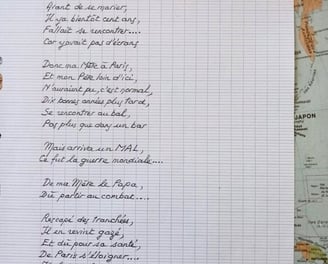 Avant de se marier,
Il y a bientôt cent ans,
Fallait se rencontrer....
Car y avait pas d'écrans
Donc ma Mère à Paris,
Et mon Père loin d'ici,
N'auraient pu, c'est normal,
Dix bonnes années plus tard,
Se rencontrer au bal,
Pas plus que dans un bar
Mais arriva un MAL,
Ce fut la guerre mondiale....
De ma Mère le Papa,
Dû partir au combat....
Rescapé des tranchées,
Il en revint gazé,
Et dû pour sa santé,
De Paris s'éloigner...
JAPON